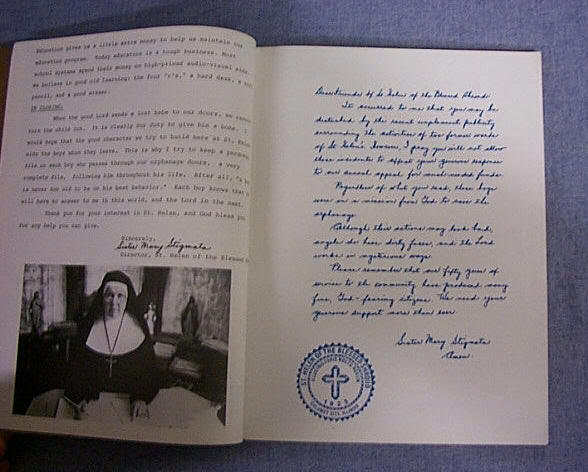 Education gives us a little extra money to help us maintain our
education program. Today education is a tough business. Most
school systems spend their money on high-priced audio-visual aids.
We believe in good old learning; the four "r's," a hard desk, a
pencil, and a good eraser.
IN CLOSING.
When the good Lord sends a lost sole to our doors, we cannot
turn the child out. It is clearly our duty to give him a home. I
would hope that the good character we try to build here at St. Helen
aids the boys when they leave. This is why I try to keep a personal
file on each boy who passes through our orphanage doors. a very
complete file, following him throughout his life. After all,
is never too old to be on his best behavior." Each boy knows that
will have to answer to me in this world, and the Lord in the next.
Thank you for your interest in St. Helen, and God bless you
for any help you can give.
Sincerely,
Sister Mary Stigmata
Director, St. Helen of the Blessed
Dear Friends of St. Helen of the Blessed Shroud:
It occurred to me that you may be
disturbed by the recent unpleasant publicity
surrounding the activities of two former wards
of St. Helen's. However, I pray you will not allow
these incidents to affect your generous response
to our annual appeal for much-needed funds.
Regardless of what you read, these boys
were on a mission from God to save the
orphanage.
Although their actions may look bad,
angels do have dirty faces, and the Lord
works in mysterious ways.
Please remember that our fifty years of
service to the community have produced many
fine, God-fearing citizens. We need your
generous support more than ever.
Sister Mary Stigmata
ST. HELEN OF THE BLESSED SHROUD
1923
CALUMET CITY, ILLINOIS